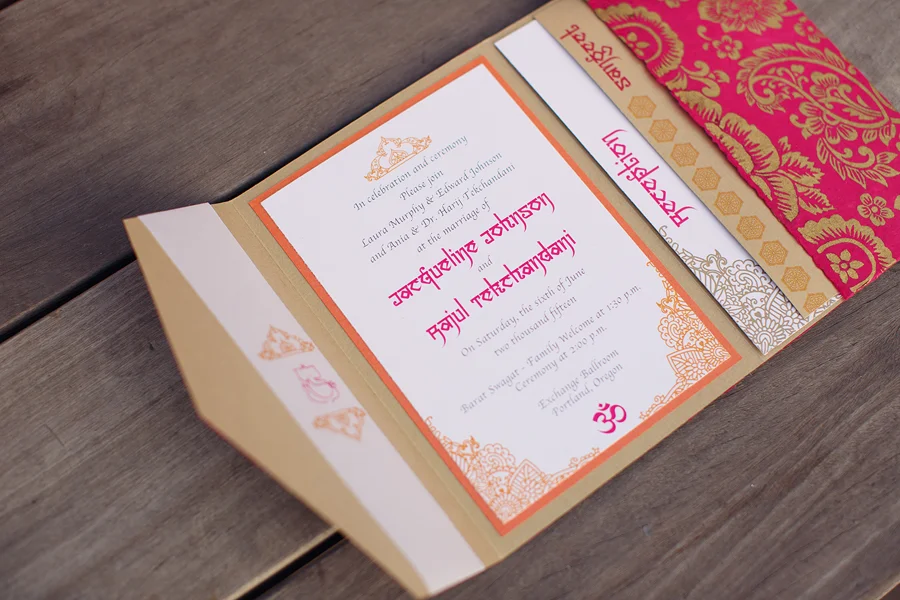 In celebration and ceremony
Please join
Laura Murphy & Edward Johnson
and Ania & Dr. Harij Tekchandani
at the marriage of
Jacqueline Johnson
and
Rajul Tekchandani
On Saturday, the sixth of June
two thousand fifteen
Barat Swagat - Family Welcome at 1:30 p.m.
Ceremony at 2:00 p.m.
Exchange Ballroom
Portland, Oregon
ॐ
Reception
Sangeet